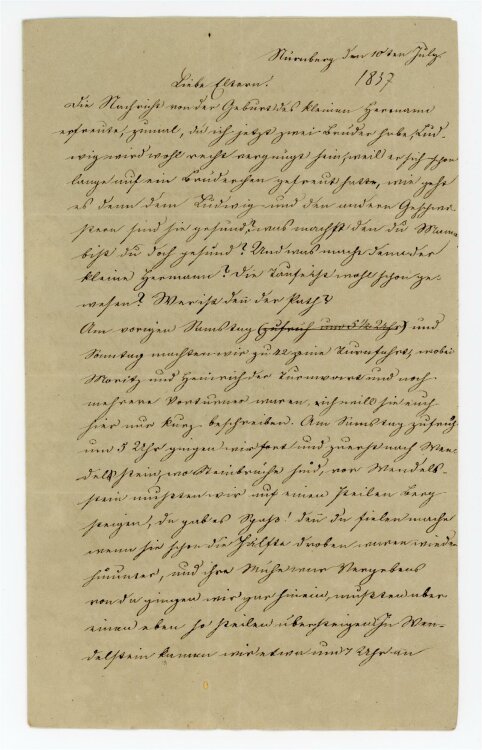 Nürnberg den 10ten July.
1857
Liebe Eltern!
Die Nachricht von der Geburt des kleinen Hermann
erfreute, zumal, da ich jetzt zwei Brüder habe, Lud-
wig wird wohl recht vergnügt sein, weil er sich schon
lange auf ein Brüderchen gefreut hatte, wie geht
es denn dem Ludwig und den andern Geschwi-
stern sind sie gesund? was machst den du Mama
bist du doch gesund? Und was macht denn der
kleine Hermann? Die Taufe ist wohl schon ge-
wesen? Wer ist den der Path?
Am vorigen Samstag (zufrüh um 5 1/2 Uhr) und
Sonntag machten wir zu 42 eine Turnfahrt, wobei
Moritz und Heinrich der Turnwart und noch
mehrere Vorturner waren, ich will sie euch
hier nur kurz beschreiben. Am Samstag zufrüh
um 5 Uhr gingen wir fort und zuerst nach Wen-
delstein, wo Steinbrüche sind, vor Wendel-
stein mußten wir auf einen steilen Berg
steigen, da gab es Spaß! den da fielen manche
wenn sie schon die Hälfte droben waren wieder
hinunter, und ihre Mühe war Vergebens
von da gingen wir gar hinein, mußten aber
einen eben so steilen übersteigen. In Wen-
delstein kamen wir etwa um 7 Uhr an